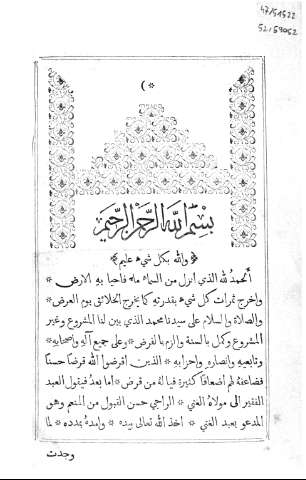 47/51522
52/59052
( * )
بسم الله الرحمن الرحيم
﴿ والله بكل شيء عليم ﴾
الحمد لله الذي انزل من السماء ماء فاحيا به الارض *
واخرج ثمرات كل شيء بقدرته كما يخرج الخلائق يوم العرض *
والصلاة والسلام على سيدنا محمد الذي بين لنا المشروع وغير
المشروع وكمل بالسنة والزم بالفرض * وعلى جميع آله واصحابه *
وتابعيه وانصاره واحزابه * الذين اقرضوا الله قرضا حسنا
فضاعفه لهم اضعافا كثيرة فياله من قرض * اما بعد فيقول العبد
الفقير الى مولاه الغني * الراجي حسن القبول من المنعم وهو
المدعو بعبد الغني * اخذ الله تعالى بيده * وامده بمدده * لما
وجدت